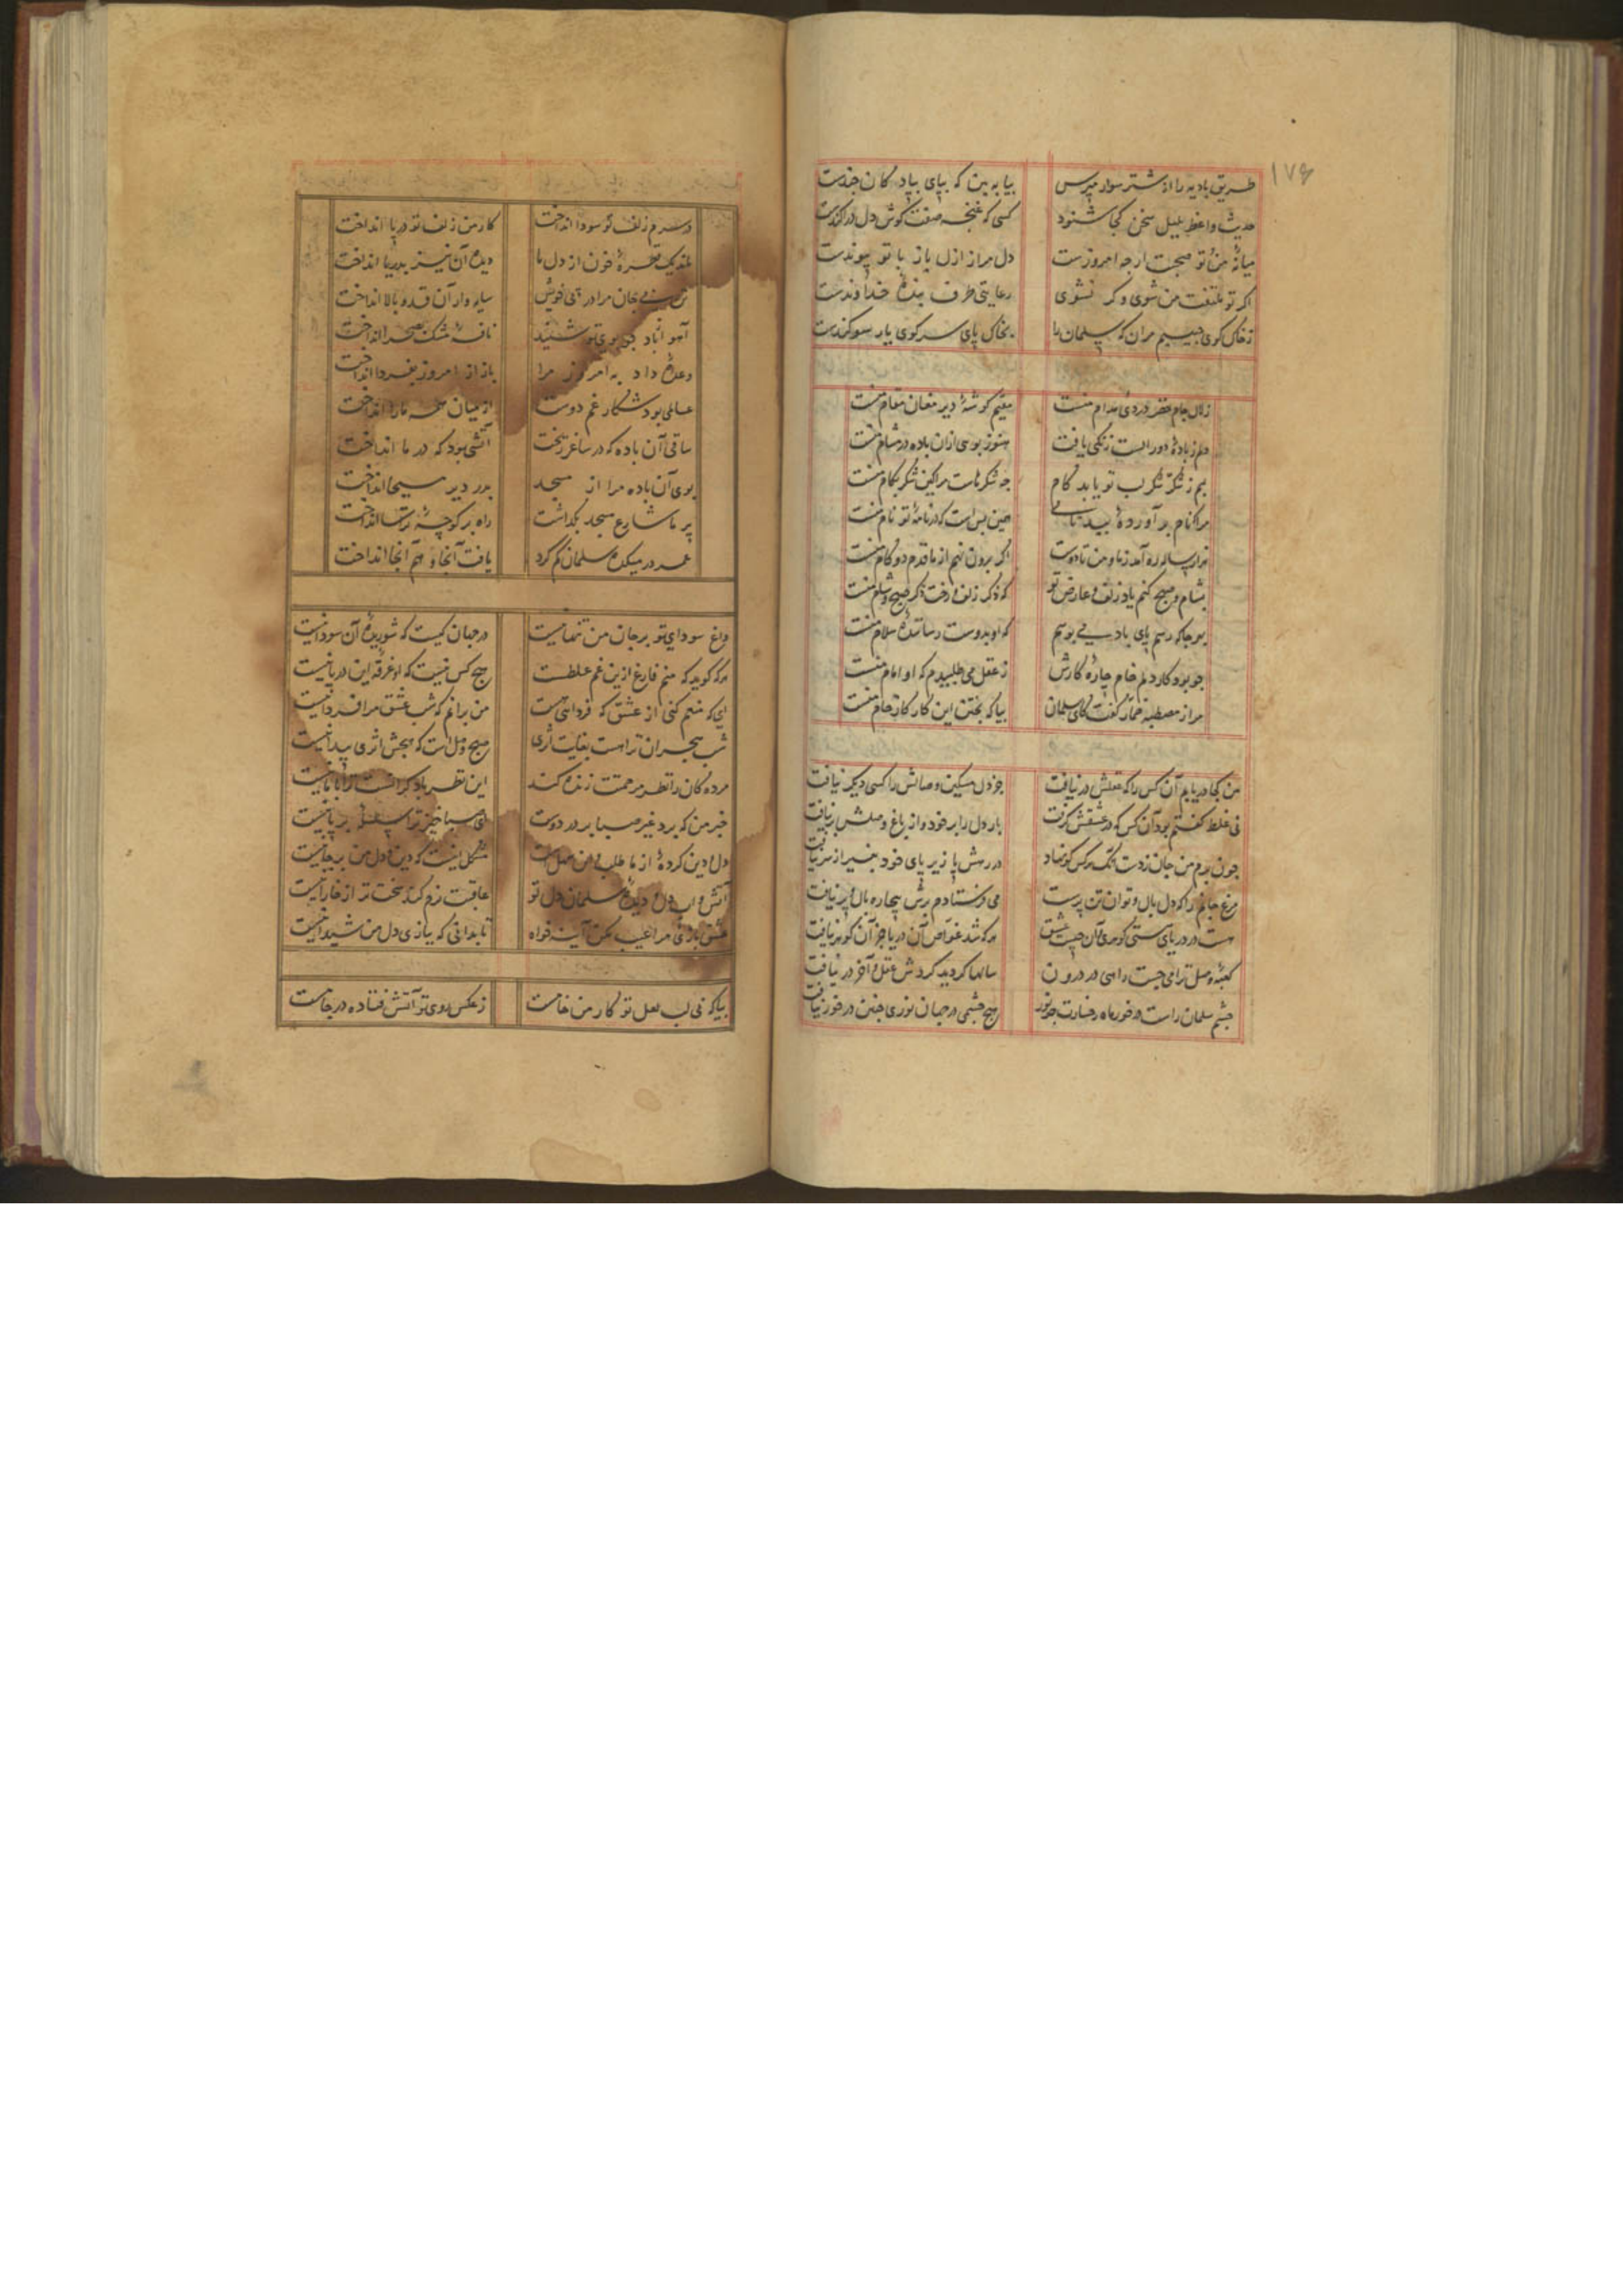 ۱۷۶
طریق بادیه را از شتر سوار مپرس بیا به بین که بپای پیادکان چندست
حدیث واعظ بلبل سخن کجا شنود کسی که غنچه صفت کوش دل در آکندست
میانهٔ من و تو صحبت ارچه امروزست دل مرا ز ازل باز با تو پیوندست
اگر تو ملتفت من شوی وگر نشوی رعایتی طرف بنده خداوندست
ز خاک کوی حبیبم مران که سلمان را بخاک پای سر کوی یار سوکندست
زلال جام خضر دردی مدام منست مقیم کوشهٔ دیر مغان مقام منست
دلم ز بادهٔ دور الست رنکی یافت هنوز بوسی ازان باده در مشام منست
بم ز شکر لب تو یابد کام چه شکرهاست مرا کین شکر بکام منست
مرا که نام برآوردهٔ ببدنامی همین بس است که در نامهٔ تو نام منست
هزار ساله ره آمد ز ما و من تا دوست اگر برون نهم از ما قدم دو کام منست
بشام و صبح کنم یاد زلف و عارض تو که ذکر زلف و رخت ذکر صبح و شام منست
بهر جا که رسم پای باد می بوسم که او بدوست رسانندهٔ سلام منست
چو بود کار دلم خام چارهٔ کارش ز عقل می طلبیدم که او امام منست
مرا ز مصطبه خمار گفت کای سلمان بیا که پختن این کار کار جام منست
من کجا دریابم آن کس را که عقلش در نیافت جز دل مسکین وصالش را کسی دیکر نیافت
نی غلط کفتم بود آن کس که در عشقش کرفت بار دل را بر خود و از باغ وصلش بر نیافت
چون برم من جان ز دست که هر کس کو نهاد در رهش پا زیر پای خود بغیر از سر نیافت
مرغ جانم را که دل بال و توان تن پرست می فرستادم برش بیچاره بال و پر نیافت
هست در دریای هستی کوهری کان چیست عشق هر که شد غواص آن دریا جز آن کوهر نیافت
کعبهٔ وصل ترا می جست راهی در درون سالها کردید کردش عقل و آخر در نیافت
چشم سلمان راست در خور ماه رخسارت چو نور هیچ چشمی در جهان نوری چنین در خور نیافت
در سرم زلف تو سودا انداخت کار من زلف تو در پا انداخت
ماند یک قطرهٔ خون از دل ما دیده آن نیز بدریا انداخت
تن بی جان مرا در پی خویش سایه وار آن قد و بالا انداخت
آهو ار باد چو بوی تو شنید نافهٔ مشک بصحرا انداخت
وعده داد به امروز مرا باز از امروز بفردا انداخت
عالمی بود شکار غم دوست از میان همه ما را انداخت
ساقی آن باده که در ساغر ریخت آتشی بود که در ما انداخت
بوی آن باده مرا از مسجد بدر دیر مسیحا انداخت
پر ما شارع مسجد بگذاشت راه بر کوچهٔ ترسا انداخت
عمر در میکده سلمان کم کرد یافت آنجا و هم آنجا انداخت
داغ سودای تو بر جان من تنها نیست در جهان کیست که شوریدهٔ آن سودا نیست
هر که کوید که منم فارغ ازین غم غلطست هیچ کس نیست که او غرقهٔ این دریا نیست
ای که منعم کنی از عشق که فردایی هست من برانم که شب عشق مرا فردا نیست
شب هجران تراست بغایت اثری صبح وصل است که هیچش اثری پیدا نیست
مرده کان را نظر مرحمتت زنده کند این نظر باد کرانست ترا با ما نیست
خبر من که برد غیر صبا بر در دوست ای صبا خیز ترا سلسله بر پا نیست
دل و دین کردهٔ از ما طلب و این سهل است مشکل اینست که دین و دل من بر جا نیست
آتش و آب دل و دیدهٔ سلمان دل تو عاقبت نرم کند سخت تر از خارا نیست
عشق بازی مرا عیب مکن آینه خواه تا بدانی که بیازی دل من شیدا نیست
بیا که بی لب لعل تو کار من خامست ز عکس روی تو آتش فتاده در جامست